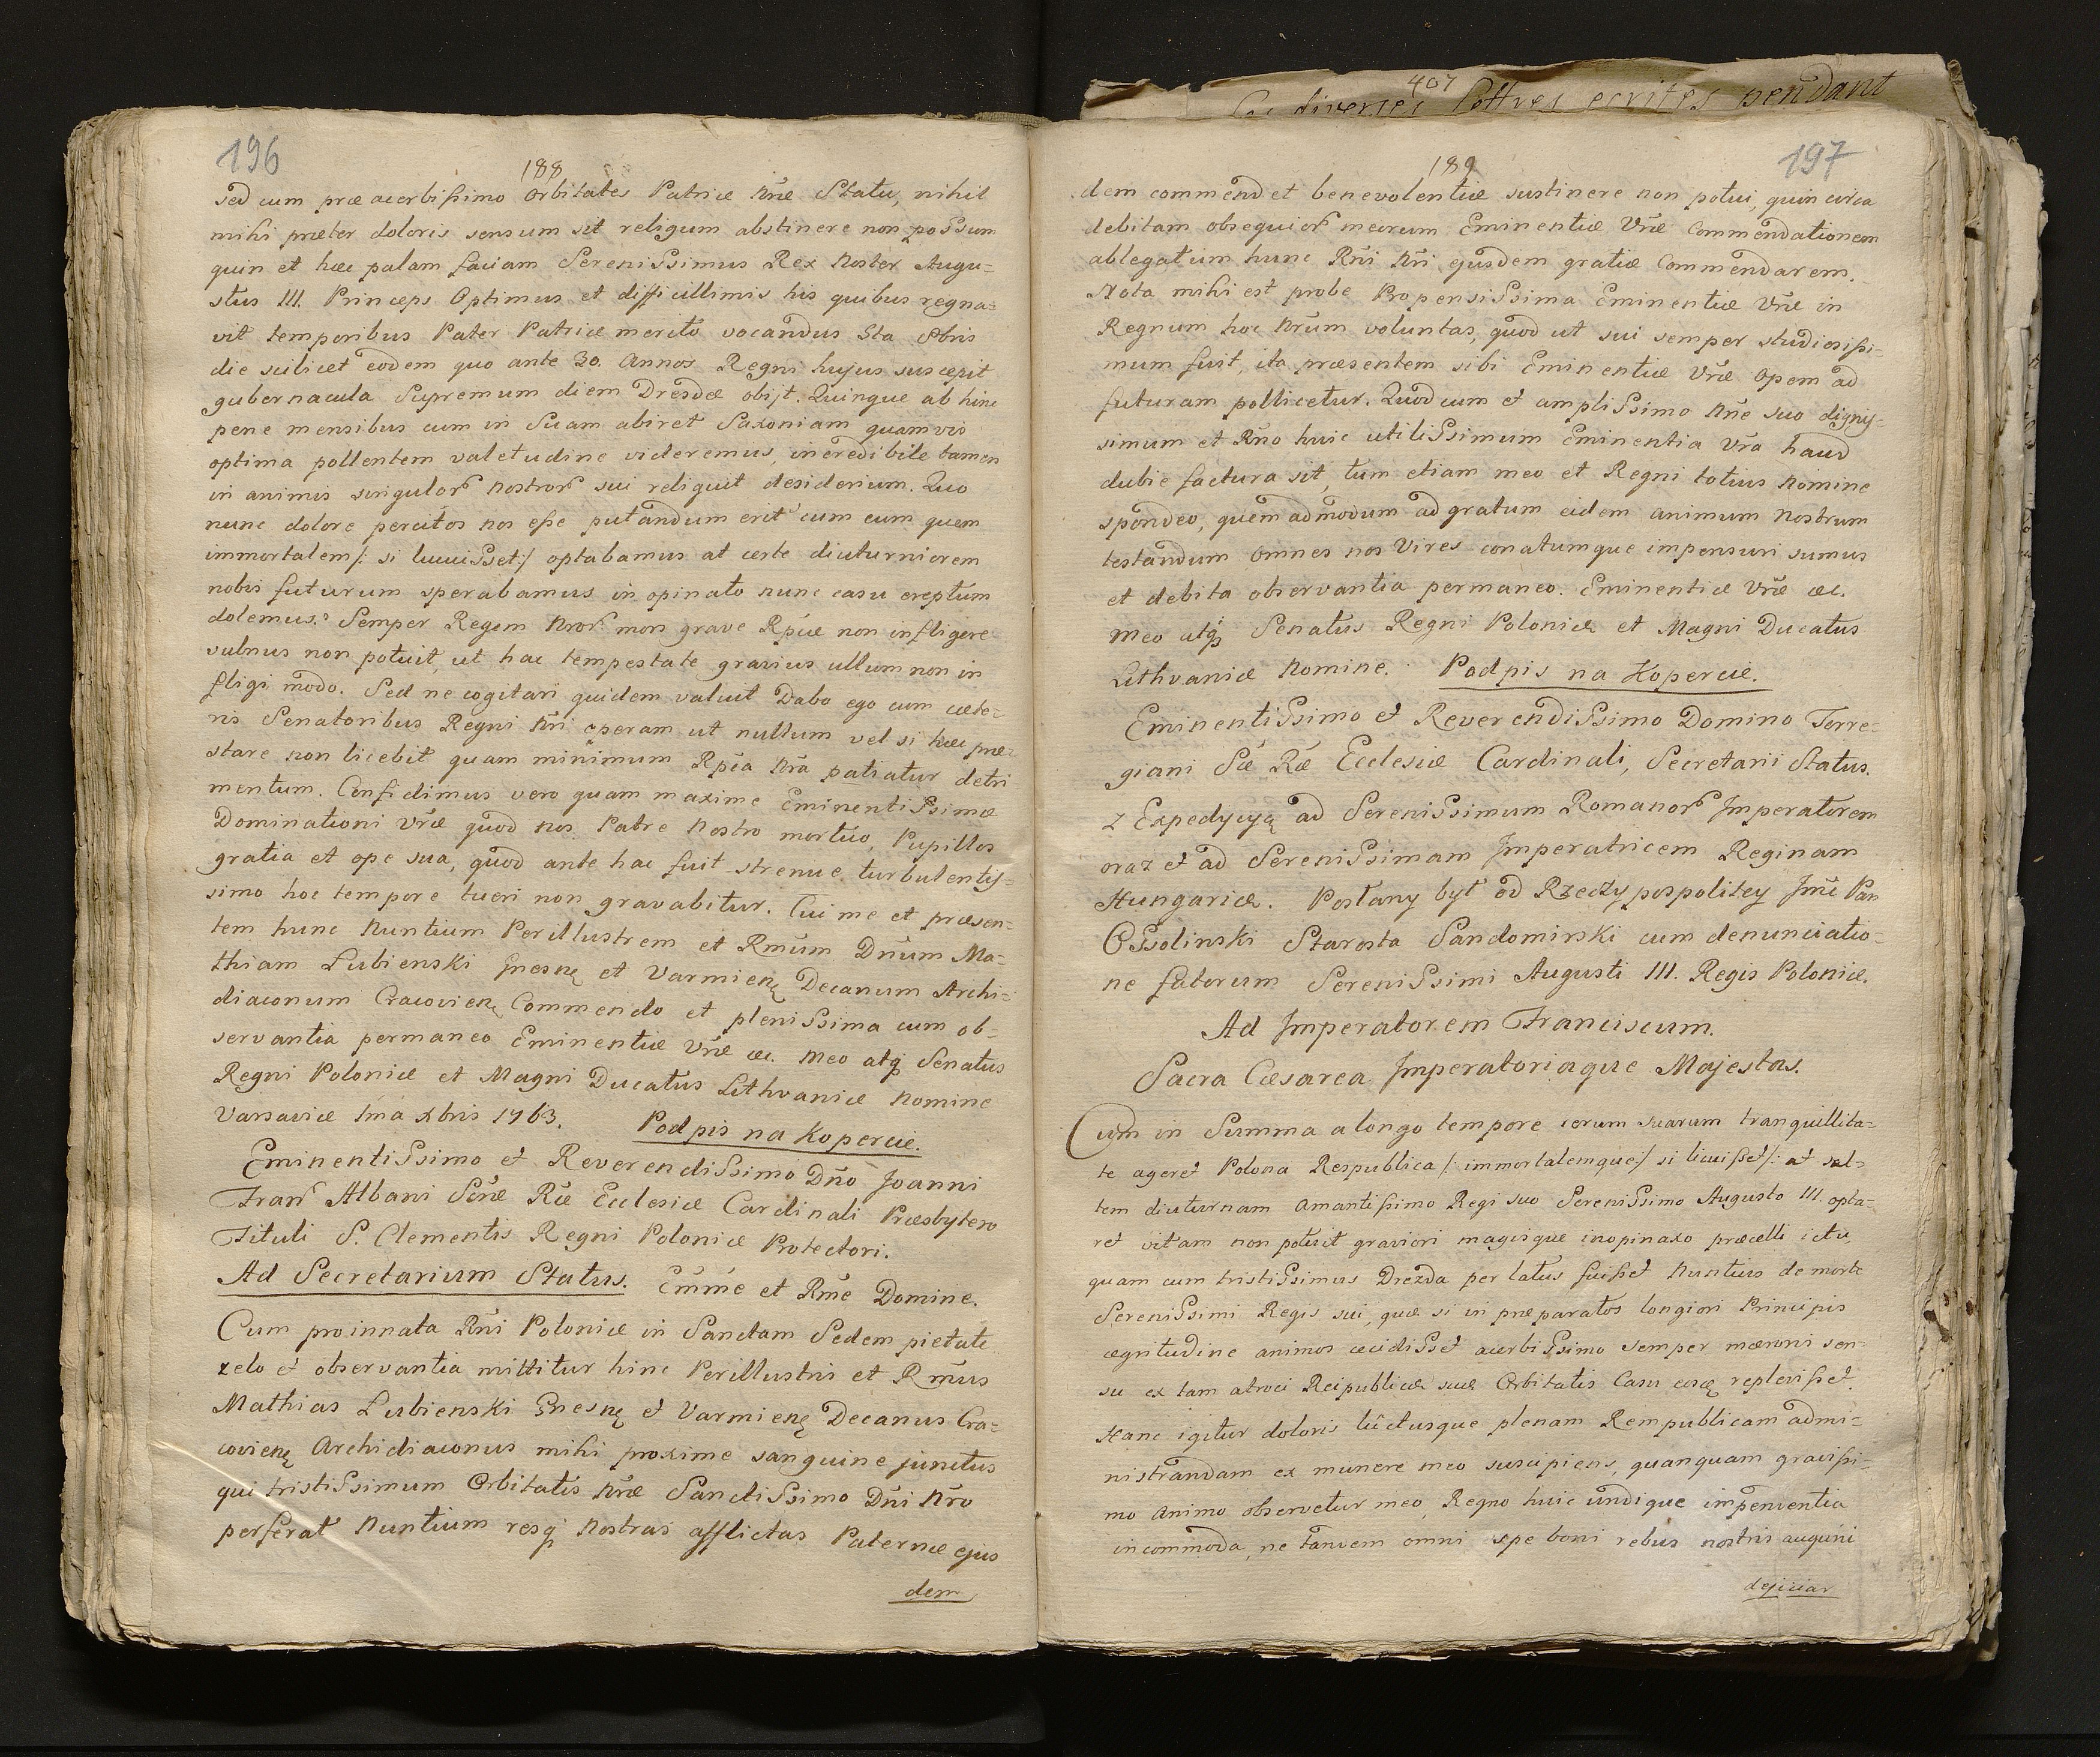 407
diverses lettres ecrites pendant
196
188
sed cum præ acerbissimo orbitates Patriæ Nræ Statu, nihil
mihi præter doloris sensum sit reliqum abstinere non possum
quin et hæc palam faciam Serenissimus Rex Noster Augu=
stus III. Princeps Optimus et difficillimis his quibus regna=
vit temporibus Pater Patriæ merito vocandus 5ta 8bris
die scilicet eodem quo ante 30. Annos Regni hujus suscepit
gubernacula Supremum diem Dresdæ obijt. Quinque ab hinc
pene mensibus cum in Suam abiret Saxoniam quamvis
optima pollentem valetudine videremus, incredibile tamen
in animis singulor nostror sui reliquit desiderium. Quo
nunc dolore percitos nos esse putandum erit cum eum quem
immortalem /: si licuisset :/ optabamus at certe diuturniorem
nobis futurum sperabamus in opinato nunc casu ereptum
dolemus. Semper Regem Nror mors grave Rpcæ non infligere
vulnus non potuit, ut hac tempestate gravius ullum non in
fligi modo. Sed ne cogitari quidem valuit Dabo ego cum cæte=
ris Senatoribus Regni Nri operam ut nullum vel si hæc præ=
stare non licebit quam minimum Rpca Nra patiatur detri
mentum. Confidimus vero quam maxime Eminentissimæ
Dominationi Vræ quod nos Patre Nostro mortuo, Pupillos
gratia et ope sua, quod ante hac fuit strenue turbulentis=
simo hoc tempore tueri non gravabitur. Cui me et præsen=
tem hunc Nuntium Perillustrem et Rmum Dnum Ma=
thiam Lubienski Gnesnę et Varmienę Decanum Archi=
diaconum Cracovienę Commendo et plenissima cum ob=
servantia permaneo Eminentiæ Vræ &c. Meo atq Senatus
Regni Poloniæ et Magni Ducatus Lithvaniæ Nomine
Varsaviæ 1ma Xbris 1763. Podpis na Kopercie.
Eminentissimo et Reverendissimo Dno Joanni
Fran Albani Scnæ Ræ Ecclesiæ Cardinali Præsbytero
Tituli S. Clementis Regni Poloniæ Protectori.
Ad Secretarium Status. Emme et Rme Domine.
Cum pro innata Rni Poloniæ in Sanctam Sedem pietate
zelo et observantia mittitur hinc Perillustris et Rmus
Mathias Lubienski Gnesnę et Varmienę Decanus Cra=
covienę Archidiaconus mihi proxime sanguine junctus
qui tristissimum Orbitatis Nræ Sanctissimo Dni Nro
perferat Nuntium resq Nostras afflictas Paternæ ejus
dem
197
189
dem commendet benevolentiæ sustinere non potui, quin circa
debitam obsequior meorum Eminentiæ Vræ Commendationem
ablegatum hunc Rni Nri ejusdem gratiæ Commendarem.
Nota mihi est probe Propensissima Eminentiæ Vræ in
Regnum hoc Nrum voluntas, quod ut sui semper studiosissi=
mum fuit, ita præsentem sibi Eminentiæ Vræ Opem ad
futuram pollicetur. Quod cum et amplissimo Nne suo digny=
simum et Rno huic utilissimum Eminentia Vra haud
dubie factura sit, tum etiam meo et Regni totius Nomine
spondeo, quemadmodum ad gratum eidem animum Nostrum
testandum omnes nos Vires conatumque impensuri sumus
et debita observantia permaneo. Eminentiæ Vræ &c.
Meo atq Senatus Regni Poloniæ et Magni Ducatus
Lithvaniæ Nomine. Podpis na Kopercie.
Eminentissimo et Reverendissimo Domino Torre=
giani Sæ Ræ Ecclesiæ Cardinali, Secretarii Status.
Z Expedycyą ad Serenissimum Romanor Imperatorem
oraz et ad Serenissimam Imperatricem Reginam
Hungariæ. Posłany był od Rzeczypospolitey Jmć Pan
Ossolinski Starosta Sandomirski cum denunciatio=
ne fatorum Serenissimi Augusti III. Regis Poloniæ.
Ad Imperatorem Franciscum.
Sacra Cæsarea Imperatoriaque Majestas.
Cum in Summa a longo tempore rerum suarum tranquillita=
te ageret Polona Respublica /: immortalemque :/ si licuisset /: at sal=
tem diuturnam Amantissimo Regi suo Serenissimo Augusto III. opta=
ret vitam non potuit graviori magisque inopinato præcelli ictu,
quam cum tristissimus Drezda per latus fuisset Nuntius de morte
Serenissimi Regis sui, quæ si in præparatos longiori Principis
ægritudine animos cecidisset acerbissimo semper mæroris sen=
su ex tam atroci Reipublicæ suæ Orbitatis Casu eosę replevisset.
Hanc igitur doloris luctusque plenam Rempublicam admi=
nistrandam ex munere meo suscipiens, quanquam gravissi=
mo Animo observetur meo, Regno huic undique impendentia
incommoda, ne tandem omni spe boni rebus nostris augurii
dejiciar